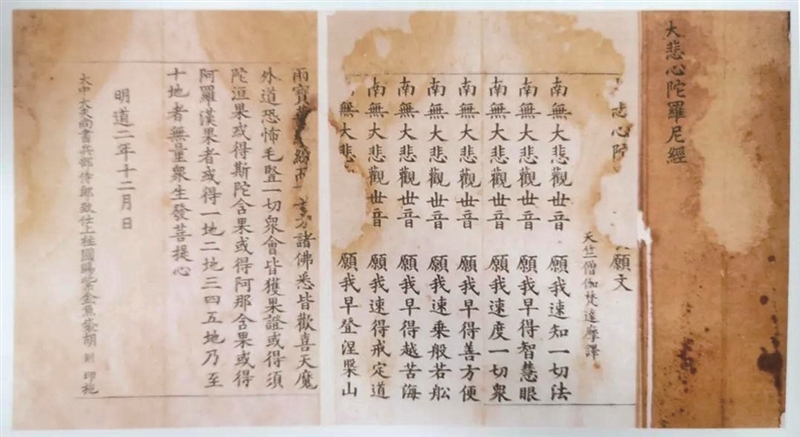 大悲心陀羅尼經
悲心陀 願文
天竺僧伽梵達摩譯
南無大悲觀世音 願我速知一切法
南無大悲觀世音 願我早得智慧眼
南無大悲觀世音 願我速度一切衆
南無大悲觀世音 願我早得善方便
南無大悲觀世音 願我速乘般若船
南無大悲觀世音 願我早得越苦海
南無大悲觀世音 願我速得戒定道
無大悲觀世音 願我早登涅槃山
雨寶 繽 方諸佛悉皆歡喜天魔
外道恐怖毛竪一切衆會皆獲果證或得須
陀洹果或得斯陀含果或得阿那含果或得
阿羅漢果者或得一地二地三四五地乃至
十地者無量衆生發菩提心
明道二年十二月日
太中大夫尚書兵部侍郎致仕上柱國賜紫金魚袋胡 則 印施